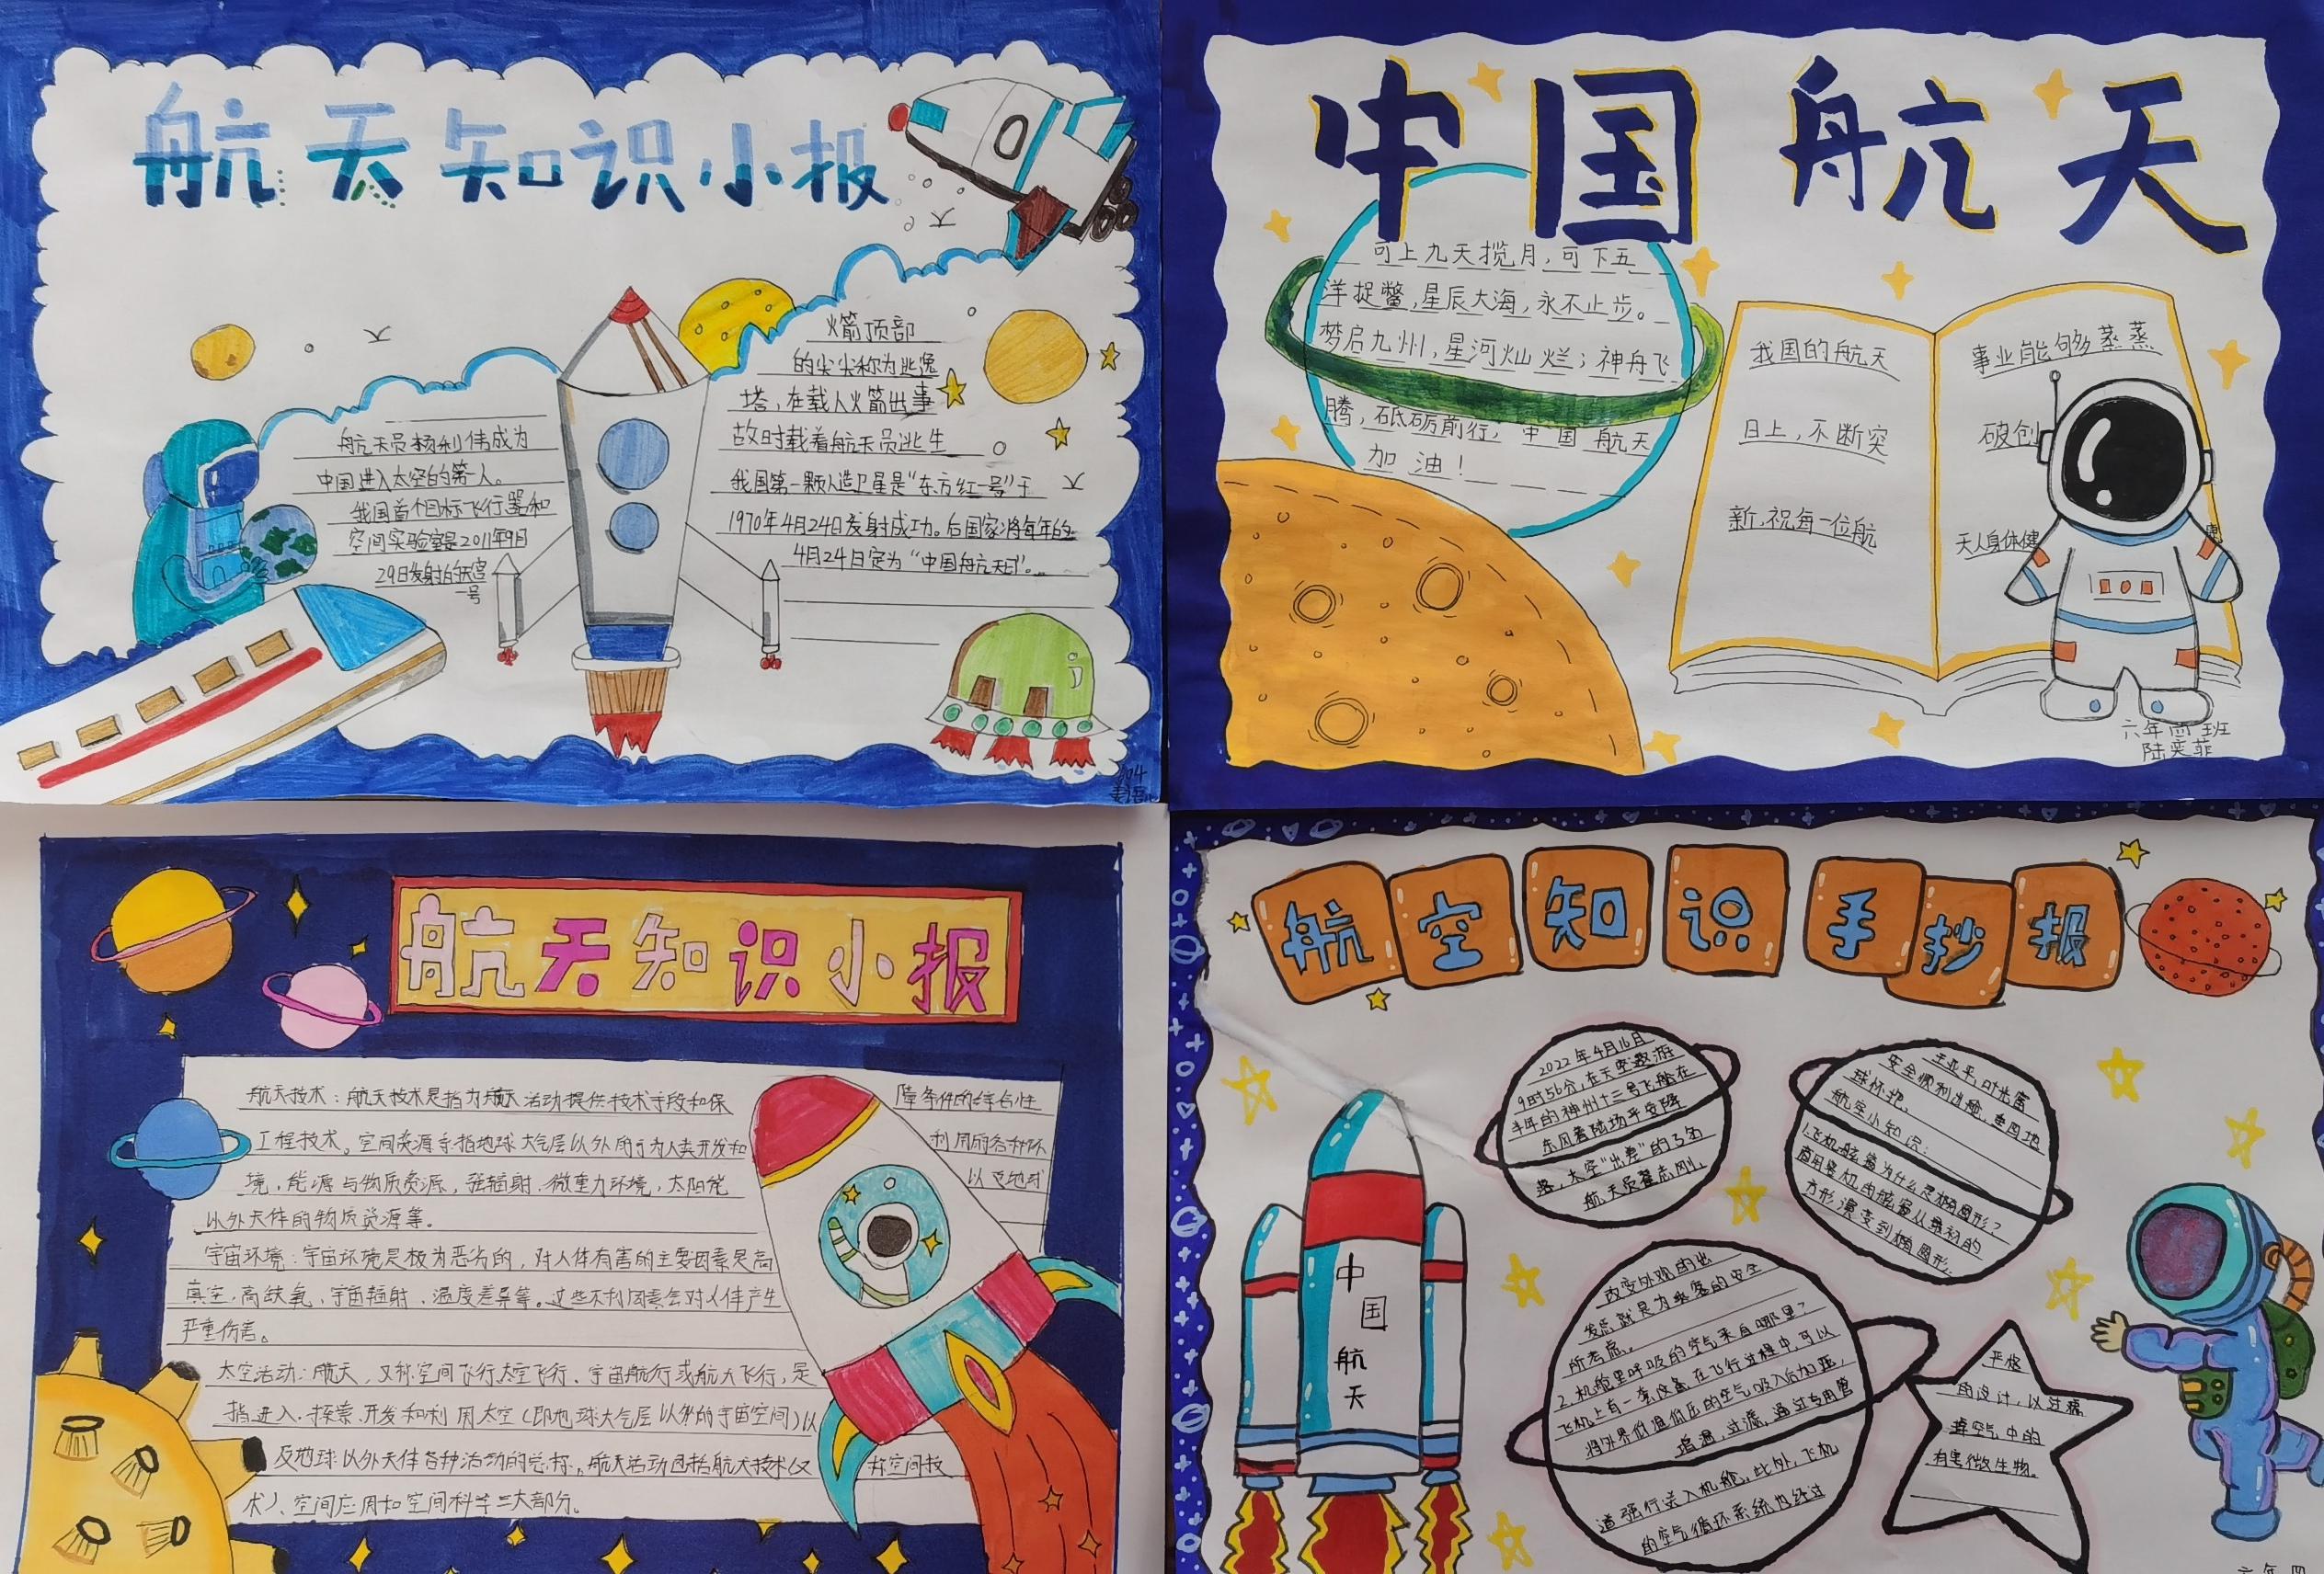 航天知识小报
航天员杨利伟成为
中国进入太空的第一人。
我国首个目标飞行器和
空间实验室是2011年9月
29日发射的天宫
一号
火箭顶部
的尖尖称为逃逸
塔,在载人火箭出事
故时载着航天员逃生
我国第一颗人造卫星是“东方红一号”于
1970年4月24日发射成功。后国家将每年的
4月24日定为“中国航天日”。
中国航天
可上九天揽月,可下五
洋捉鳖,星辰大海,永不止步。
梦启九州,星河灿烂;神舟飞
腾,砥砺前行,中国航天
加油!
我国的航天
日上,不断突
新,祝每一位航
事业能够蒸蒸
破创
天人身体健
康
六年四班
陆奕菲
航天知识小报
航天技术:航天技术是指为航天活动提供技术手段和保 障条件的综合性
工程技术。空间资源手指地球大气层以外的可为人类开发和 利用的各种环
境,能源与物质资源,强辐射.微重力环境,太阳能 以及地球
以外天体的物质资源等。
宇宙环境:宇宙环境是极为恶劣的,对人体有害的主要因素是高
真空.高缺氧、宇宙辐射.温度差异等。这些不利因素会对人体产生
严重伤害。
太空活动:航天,又称空间飞行太空飞行、宇宙航行或航天飞行,是
指进入.探索.开发和利用太空(即地球大气层以外的宇宙空间)以
及地球以外天体各种活动的总称。航天活动包括航天技术(又 称空间技
术)、空间应用和空间科学三大部分。
航空知识手抄报
2022年4月16日
9时56分,在天空遨游
半年的神州十三号飞船在
东风着陆场平安降
落,太空“出差”的3名
航天员翟志刚、
王亚平,叶光富
安全顺利出舱,重回地
球怀抱.
航空小知识:
1.飞机舷窗为什么是椭圆形?
商用客机的舷窗从最初的
方形演变到椭圆形.
改变外观的出
发点就是为乘客的安全
所考虑.
2.机舱里呼吸的空气来自哪里?
飞机上有一套设备在飞行过程中,可以
将外界低温低压的空气吸入后加压,
增温,过滤,通过专用管
道强行送入机舱。此外,飞机
的空气循环系统也经过
严格
的设计,以过滤
掉空气中的
有害微生物。
中
国
航
天